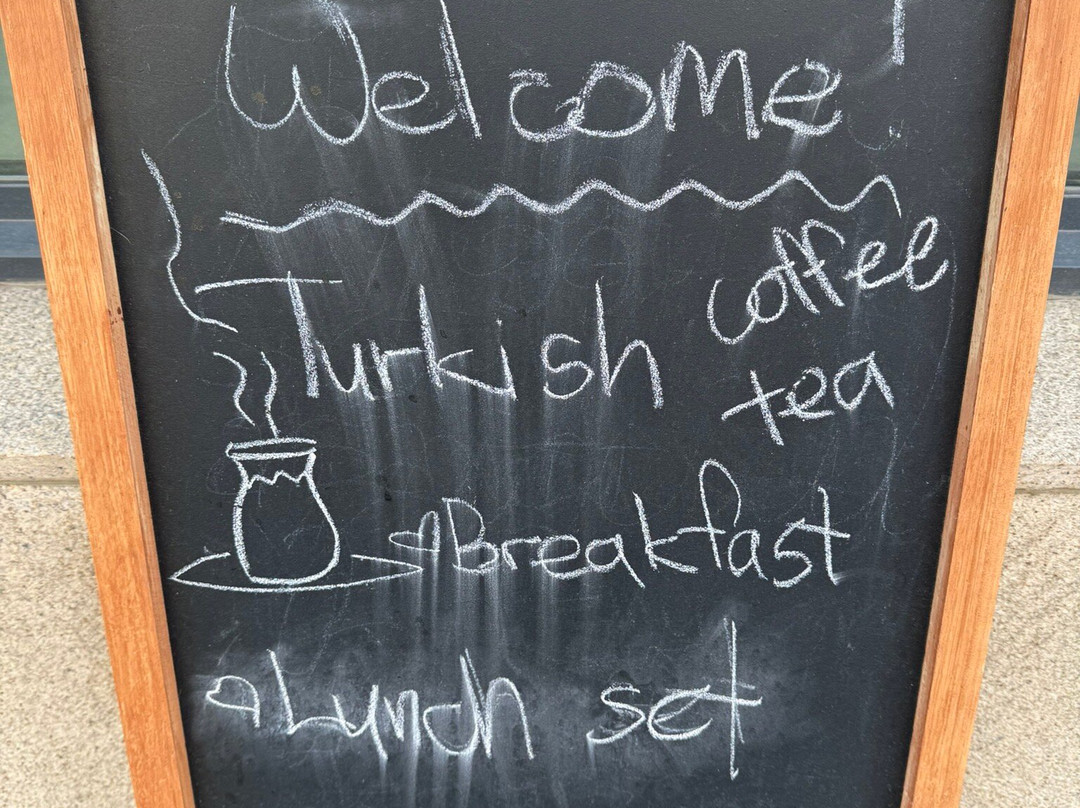 Welcome!
Turkish coffee
tea
Breakfast
Lunch set